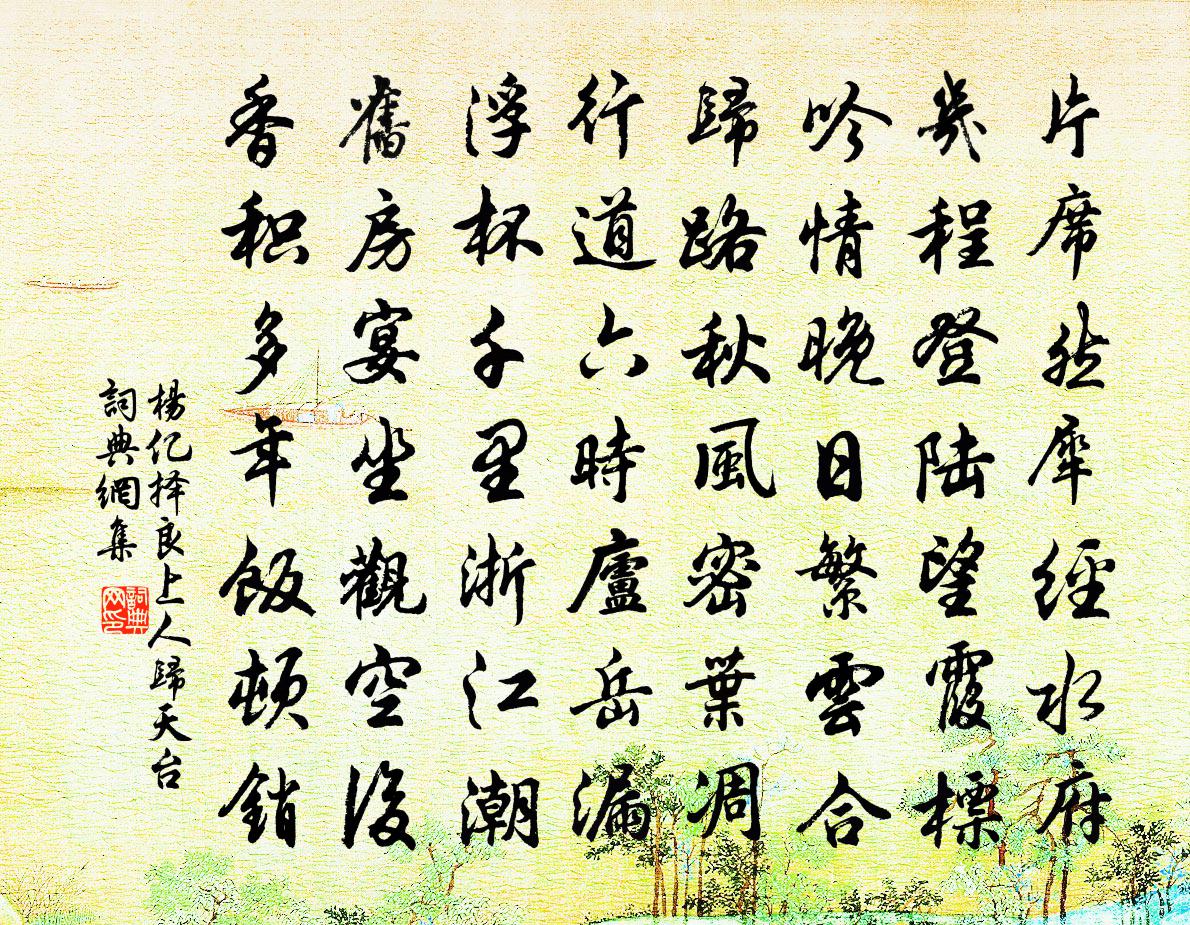 片席然犀經水府
幾程登陸望霞標
吟情晚日繁雲合
歸路秋風密葉凋
行道六時廬岳漏
浮杯千里浙江潮
舊房宴坐觀空後
香积多年飯頓銷
楊亿择良上人歸天台
詞典網集
詞典网印